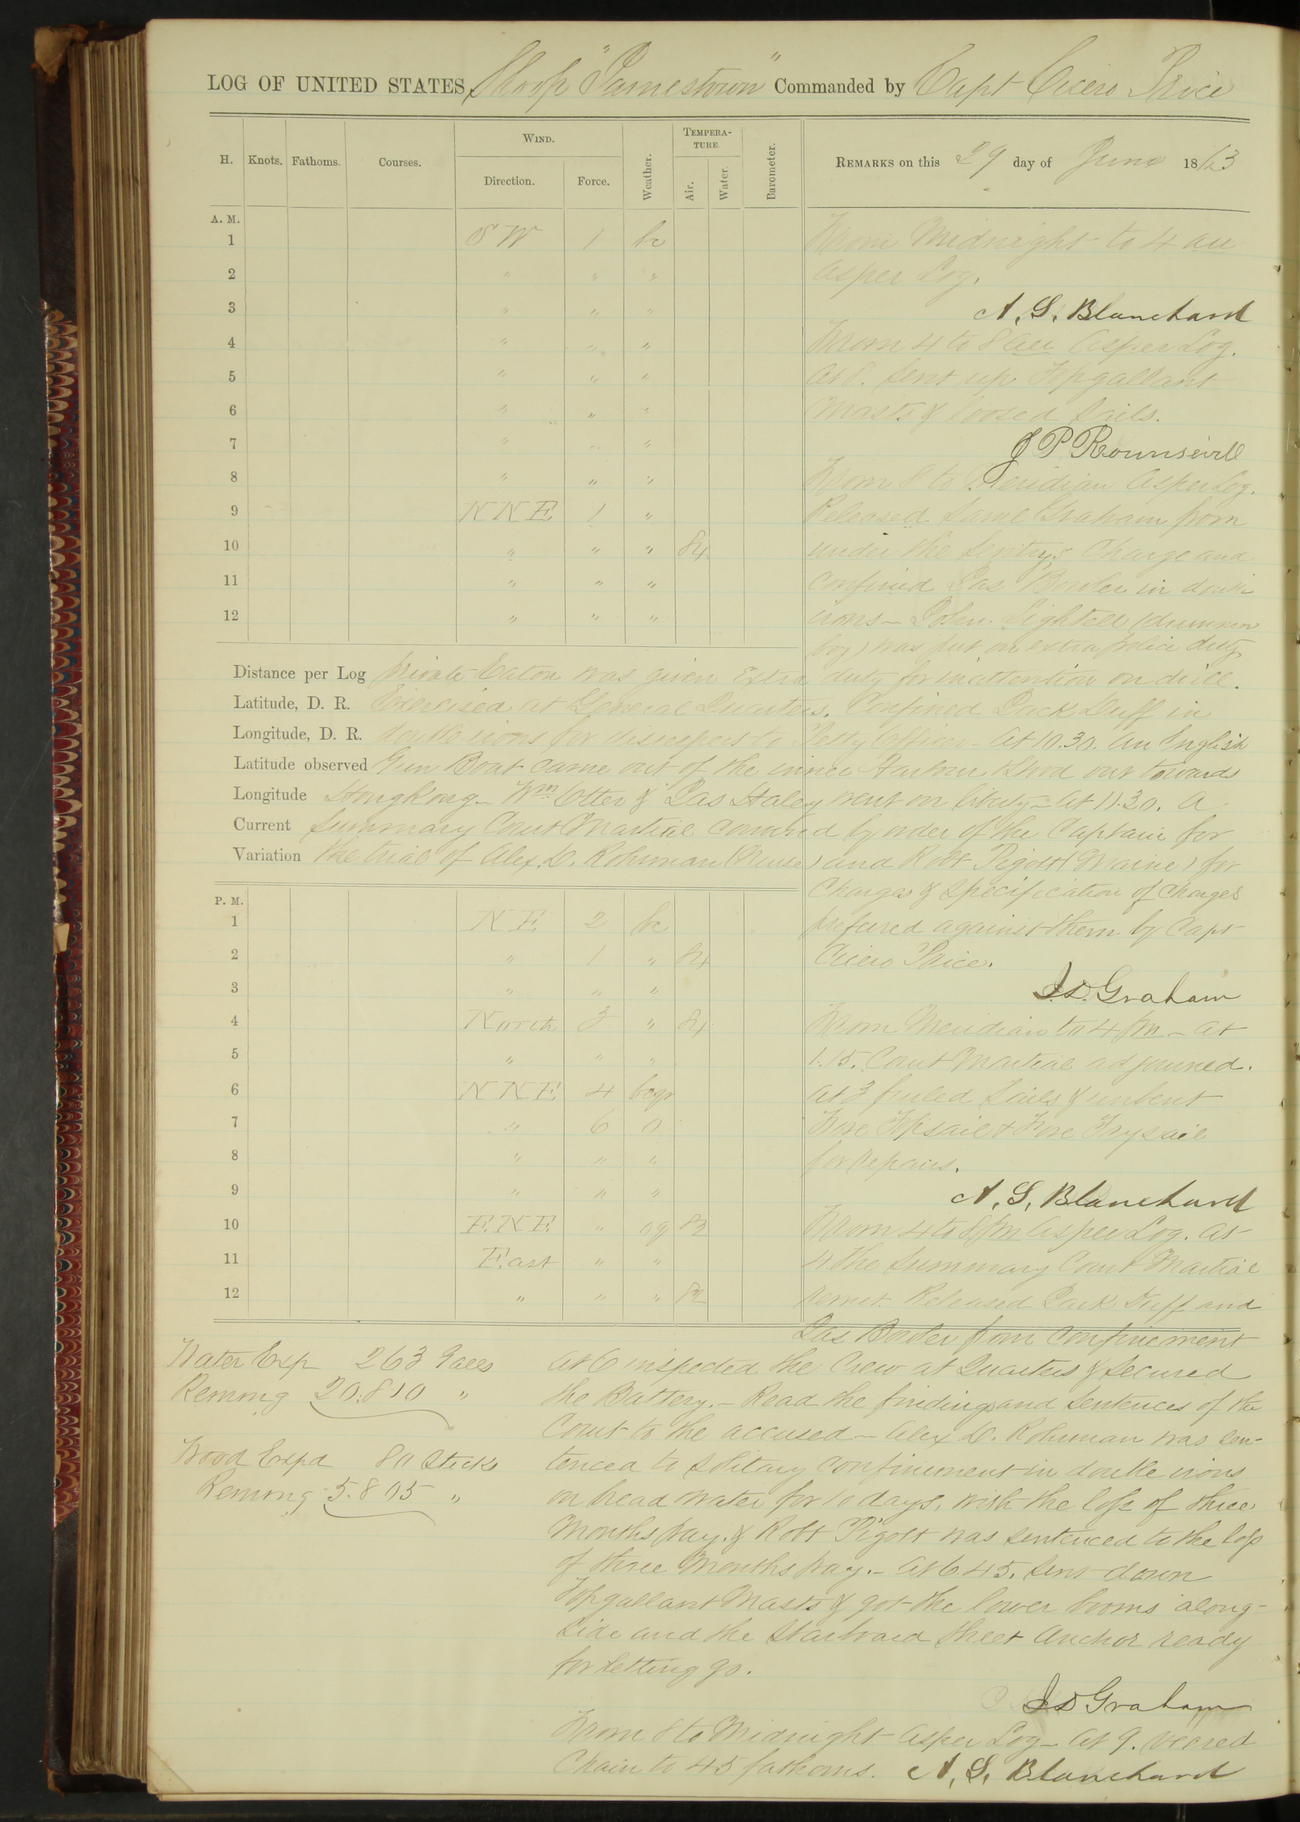 LOG OF UNITED STATES Sloop "Jamestown" Commanded by Capt Cicero Price
H. Knots. Fathoms. Courses. WIND. Direction. Force. Weather. TEMPERATURE. Air. Water. Barometer.
REMARKS on this 29 day of June 1863
A. M.
1 SW 1 bc
2 " " "
3 " " "
4 " " "
5 " " "
6 " " "
7 " " "
8 " " "
9 NNE 1 "
10 " " " 84
11 " " "
12 " " "
From Midnight to 4 am
as per Log.
A. S. Blanchard
From 4 to 8 am as per Log.
At 8. sent up Topgallant
Masts & loosed sails.
J P Rounsevill
From 8 to Meridian as per Log.
Released Saml Graham from
under the Sentry's Charge and
confined Jas Border in double
irons— John Lightell (drummer
boy) was put on extra police duty
Distance per Log
Private Eaton was given Extra duty for inattention on drill.
Latitude, D. R.
Exercised at General Quarters. Confined Jack Duff in
Longitude, D. R.
double irons for disrespect to Petty Officer— At 10.30. an English
Latitude observed
Gun Boat came out of the inner Harbour & stood out towards
Longitude
HongKong— Wm Otter & Jas Haley went on liberty— At 11.30. A
Current
Summary Court Martial convened by order of the Captain for
Variation
the trial of Alex. D. Rohrman (Nurse) and Robt Pigott (Marine) for
Charges & specification of charges
prefered against them by Capt
Cicero Price.
J. D. Graham
P. M.
1 NE 2 bc
2 " 1 " 84
3 " " "
4 North 3 " 84
5 " " "
6 NNE 4 bcqr
7 " 6 o
8 " " "
9 " " "
10 ENE " oq 82
11 East " "
12 " " " 82
From Meridian to 4 pm— At
1.15. Court Martial adjourned.
At 3 furled sails & unbent
Fore Topsail & Fore Trysail
for repairs.
A. S. Blanchard
From 4 to 8 pm as per Log. At
4 the Summary Court Martial
remet. Released Jack Duff and
Jas Border from confinement
At 6 inspected the Crew at Quarters & secured
the Battery.— Read the findings and sentences of the
Court to the accused— Alex D. Rohrman was sen-
tenced to solitary confinement in double irons
on bread water for 10 days, with the loss of three
Months pay. & Robt Pigott was sentenced to the loss
of three Months pay.— At 6.45. sent down
Topgallant Masts & got the lower booms along-
side and the Starboard sheet Anchor ready
for letting go.
J D Graham
From 8 to Midnight as per Log— At 9. veered
Chain to 45 fathoms. A. S. Blanchard
Water Exp 263 Galls
Remng 20.810 "
Wood Expd 80 Sticks
Remng 5.805 "